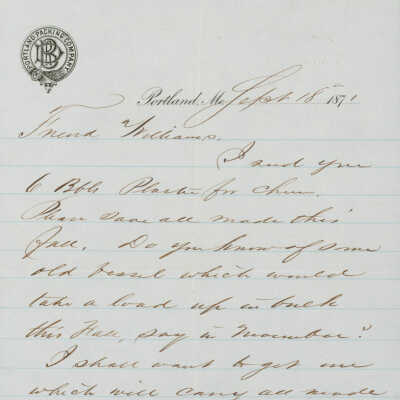 PORTLAND PACKING COMPANY
Portland, Me. Sept 18" 1871
Friend Williams.
I send you
6 Bbls Plaster for
Please save all made this
Fall. Do you know of some
old vessel which would
take a load up in bulk
this Fall, say in November?
I shall want to get one
which will carry all made